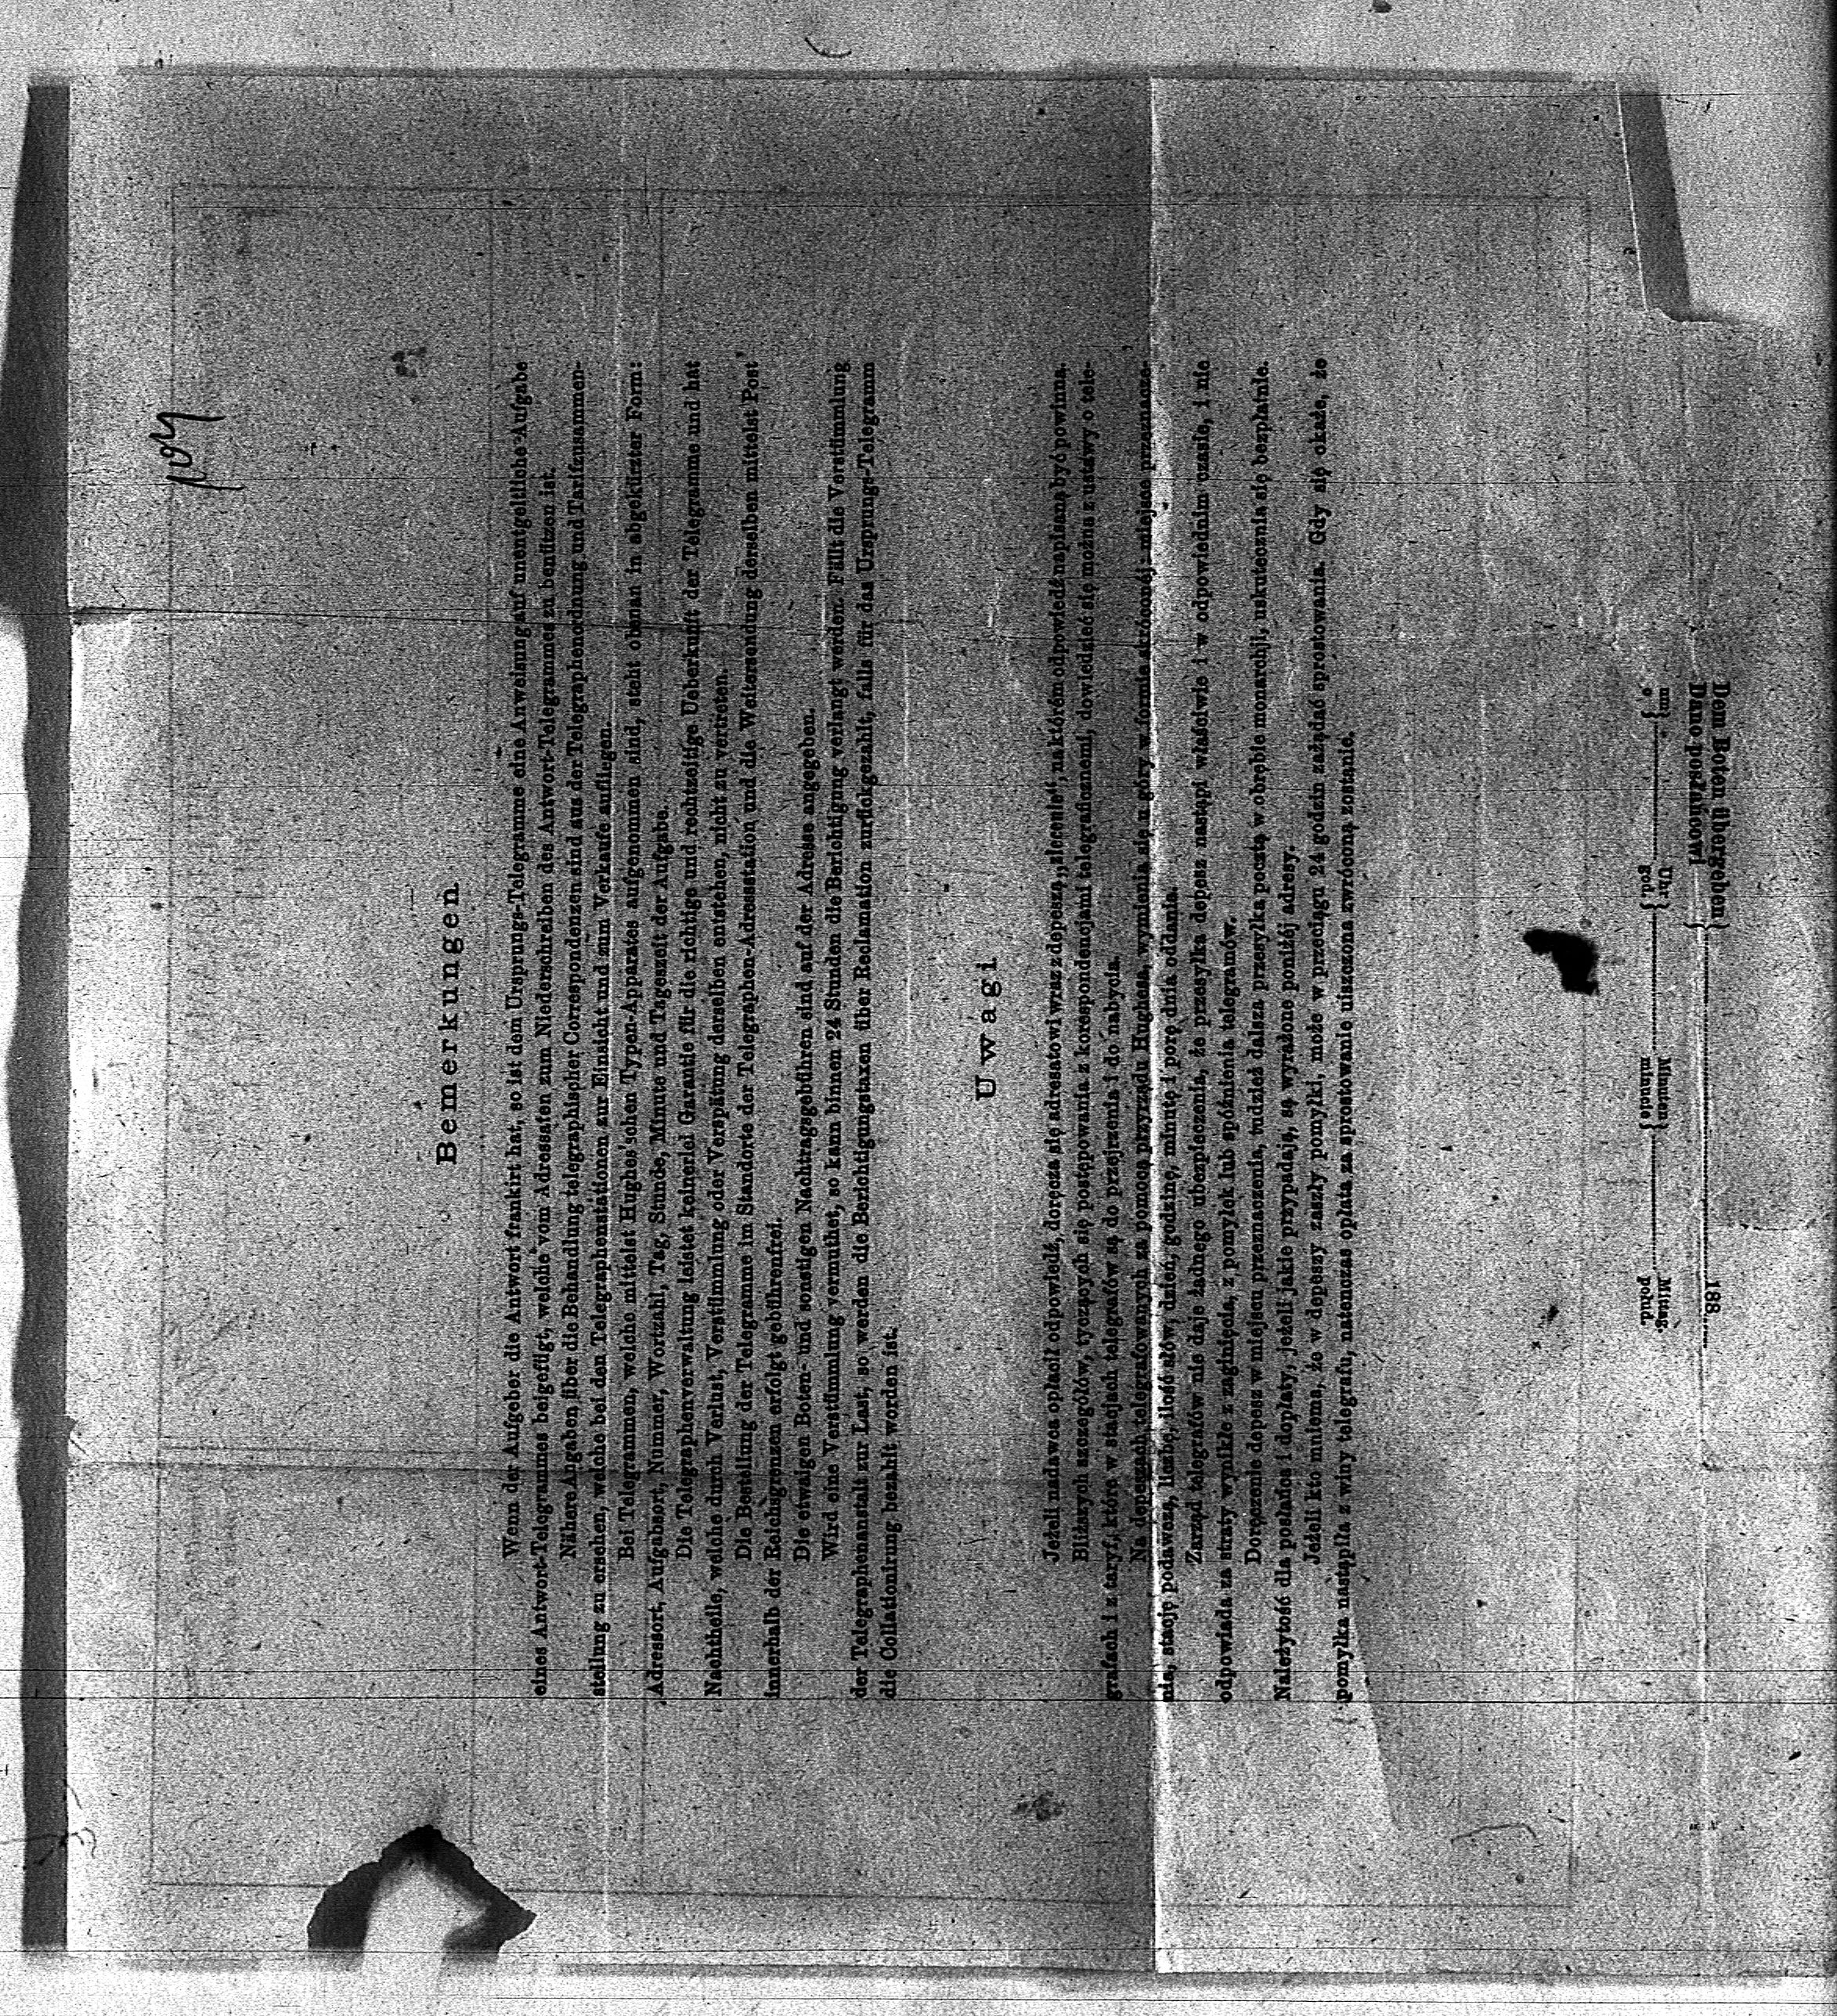 Bemerkungen
Wenn der Aufgeber die Antwort frankirt hat, so ist dem Ursprungs-Telegramme eine Anweisung auf unentgeltliche Aufgabe
eines Antwort-Telegrammes beigefügt, welche vom Adressaten zum Niederschreiben des Antwort-Telegrammes zu benützen ist.
Nähere Angaben über die Behandlung telegraphischer Correspondenzen sind aus der Telegraphenordnung und Tarifzusammen-
stellung zu ersehen, welche bei den Telegraphenstationen zur Einsicht und zum Verkaufe aufliegen.
Bei Telegrammen, welche mittelst Hughes'schen Typen-Apparates aufgenommen sind, steht obenan in abgekürzter Form:
Adressort, Aufgabsort, Nummer, Wortzahl, Tag, Stunde, Minute und Tageszeit der Aufgabe.
Die Telegraphenverwaltung leistet keinerlei Garantie für die richtige und rechtzeitige Ueberkunft der Telegramme und hat
Nachtheile, welche durch Verlust, Verstümmlung oder Verspätung derselben entstehen, nicht zu vertreten.
Die Bestellung der Telegramme im Standorte der Telegraphen-Adressstation und die Weitersendung derselben mittelst Post
innerhalb der Reichsgrenzen erfolgt gebührenfrei.
Die etwaigen Boten- und sonstigen Nachtragsgebühren sind auf der Adresse angegeben.
Wird eine Verstümmlung vermuthet, so kann binnen 24 Stunden die Berichtigung verlangt werden. Fällt die Verstümmlung
der Telegraphenanstalt zur Last, so werden die Berichtigungstaxen über Reclamation zurückgezahlt, falls für das Ursprungs-Telegramm
die Collationirung bezahlt worden ist.
Uwagi
Jeżeli nadawca opłacił odpowiedź, doręcza się adresatowi wraz z depeszą „zlecenie", na którém odpowiedź napisaną być powinna.
Bliższych szczegółów, tyczących się postępowania z korespondencjami telegraficznemi, dowiedzieć się można z ustawy o tele-
grafach i z taryf, które w stacjach telegrafów są do przejrzenia i do nabycia.
Na depeszach telegrafowanych za pomocą przyrządu Hughesa, wymienia się u góry w formie skróconéj: miejsce przeznacze-
nia, stację podawczą, liczbę, ilość słów, dzień, godzinę, minutę i porę dnia oddania.
Zarząd telegrafów nie daje żadnego ubezpieczenia, że przesyłka depesz nastąpi właściwie i w odpowiednim czasie, i nie
odpowiada za straty wynikłe z zaginięcia, z pomyłek lub spóźnienia telegramów.
Doręczenie depesz w miejscu przeznaczenia, tudzież dalsza przesyłka pocztą w obrębie monarchij, uskutecznia się bezpłatnie.
Należytość dla posłańca i dopłaty, jeżeli jakie przypadają, są wyrażone poniżéj adresy.
Jeżeli kto mniema, że w depeszy zaszły pomyłki, może w przeciągu 24 godzin zażądać sprostowania. Gdy się okaże, że
pomyłka nastąpiła z winy telegrafu, natenczas opłata za sprostowanie uiszczona zwróconą zostanie.
Dem Boten übergeben
Dano posłańcowi
188
um
o
Uhr
god.
Minuten
minucie
Mittag.
połud.